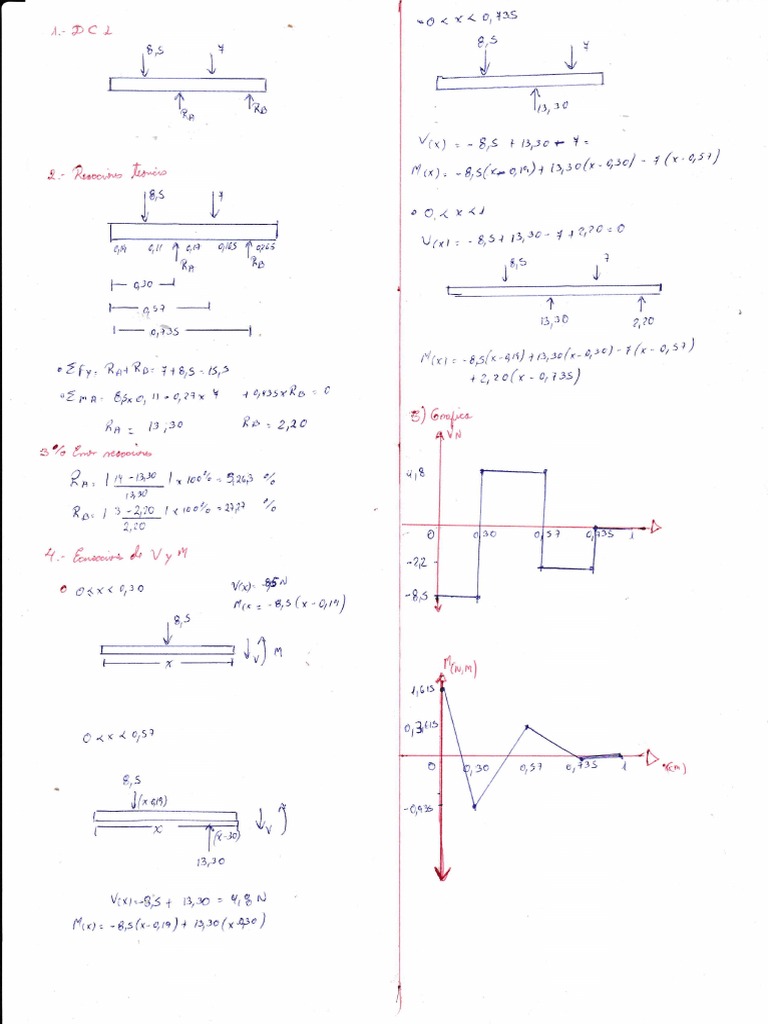 1.- DCL
8,5 7
RA RB
2.- Reacciones teoricas
8,5 7
0,19 0,11 0,27 0,165 0,265
RA RB
0,30
0,57
0,735
ΣFy= RA+RB= 7+8,5=15,5
ΣMA= 8,5x0,11-0,27x7 +0,435xRB=0
RA= 13,30 RB= 2,20
3 % Error reacciones
RA= |14-13,30/13,30| x 100% = 5,263 %
RB= |3-2,20/2,20| x 100% = 27,27 %
4.- Ecuaciones de V y M
0<x<0,30 V(x)= -8,5N
M(x= -8,5(x-0,19)
8,5
V M
x
0<x<0,57
8,5
(x-0,19)
x V
(x-30)
13,30
V(x)=-8,5+ 13,30=4,8 N
M(x)= -8,5(x-0,19)+ 13,30(x-0,30)
0<x<0,735
8,5 7
13,30
V(x)= -8,5 +13,30 - 7=
M(x)= -8,5(x-0,19)+13,30(x-0,30)-7(x-0,57)
0,<x<1
V(x)= -8,5+13,30-7+2,20=0
8,5 7
13,30 2,20
M(x)= -8,5(x-0,19)+13,30(x-0,30)-7(x-0,57)
+2,20(x-0,735)
5) Grafica
VN
4,8
0 0,30 0,57 0,735 1
-2,2
-8,5
M(N,M)
1,615
0,3615
0 0,30 0,57 0,735 1 (m)
-0,935